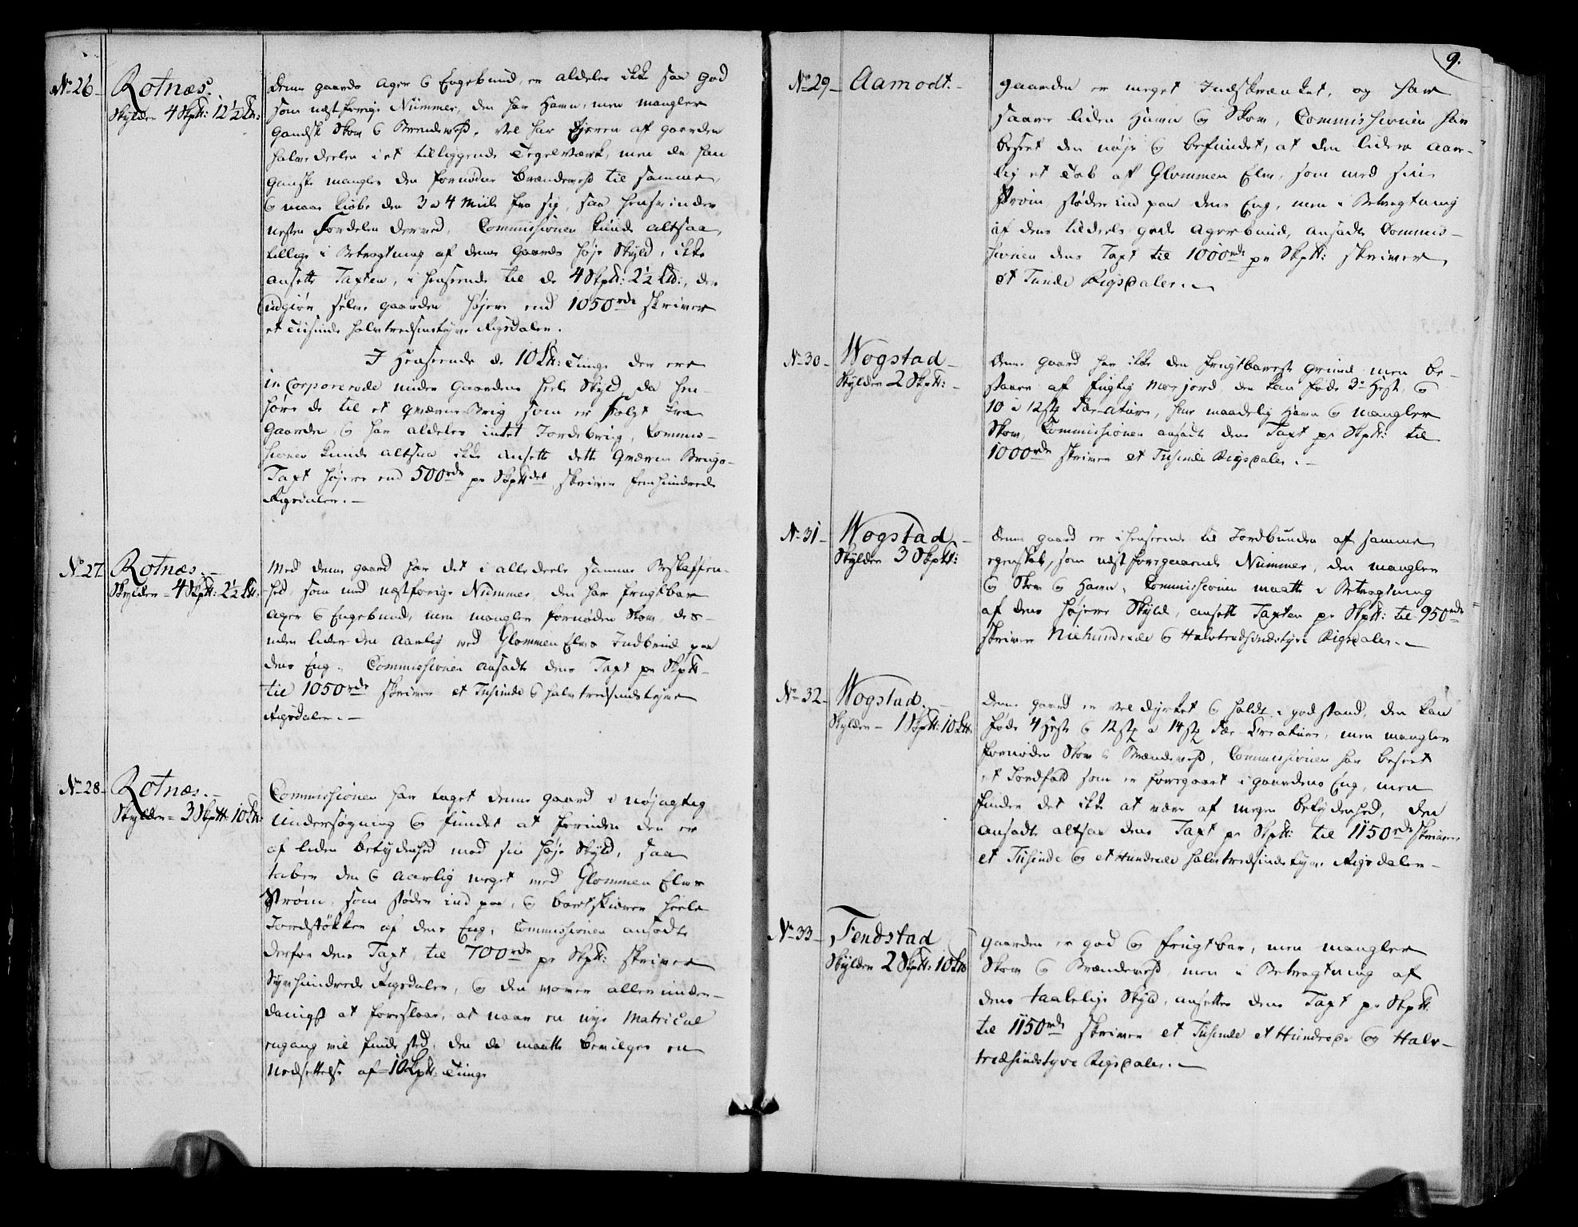 No 26 Rotnæs.
Skylder 4 Skpd: 12½ Lb:
Denne gaards Ager & Engebund, er aldeles ikke saa god
som næstforrige Nummer, den har Havn, men mangler
gandske Skov & Brændeved, vel har Ejeren af gaarden
halve deelen i et tilliggende Tegelværk, men da han
ganske mangler den fornødne Brændeved til samme,
& maae kiøbe den 3 a 4 Miil fra sig, saa henseivinder
nesten fordelen derved, Commissionen kunde altsaa,
tillige i Betragtning af denne gaards høje Skyld, ikke
ansette Taxten, i henseende til de 4 Skpd: 2½ Lb:, der
udgiør selve gaarden højere end 1050 rde skriver
et Tusinde halvtredsindstyve Rigsdaler.
I Henseende de 10 Lb: Tunge der ere
incorporerede under gaardens heele Skyld, da hen-
høre de til et Qværne Brug, som er solgt fra
Gaarden, & har aldeles intet Jordebrug, Commis-
sionen kunde altsaa ikke ansette dette Qværne Brugs
Taxt højere end 500 rde pr Skpd skriver femhundrede
Rigsdaler. —
No 27 Rotnæs. —
Skylder - 4 Skpd: 2½ Lb:
Med denne gaard har det i alle deele samme Beskaffen-
hed, som med næstforrige Nummer, den har frugtbar
Ager & Engebund, men mangler fornøden Skov, des-
uden lider den Aarlig ved Glommen Elvs Indbrud paa
dens Eng. Commissionen ansadte dens Taxt pr Skpd:
til 1050 rde skriver et Tusinde & halvtredsindstyve
Rigsdaler. —
No 28 Rotnæs. —
Skylder - 3 Skpd: 10 Lb:
Commissionen har taget denne gaard i nøjagtig
Undersøgning & fundet at herunder den er
af liden betydenhed mod sin høje Skyld, saa
taber den & aarlig meget ved Glommen Elvs
Strøm, som støder ind paa, & bortskiærer heele
Jordstøkker af dens Eng, Commissionen ansadte
derfor dens Taxt, til 700 rde pr Skpd: skriver
Syvhundrede Rigsdaler, & den vover allerunder-
danigst at foreslaae, at naar en nye Matricul
engang vil finde sted, den da maatte bevilges en
Nedsettelse af 10 Lpd: Tunge
9.
No 29 Aamodt. —
Gaarden er meget Indskrænket, og har
saare liden Havn & Skov, Commissionen har
beseet den nøje & befundet, at den lider aar-
lig et Tab af Glommen Elv, som med sin
Strøm støder ind paa dens Eng, men i Betragtning
af dens tildeels gode Agerbund, ansadte Commis-
sionen dens Taxt til 1000 rde pr Skpd: skriver,
et Tusinde Rigsdaler. —
No 30 Wogstad —
Skylder 2 Skpd: —
Denne gaard har ikke den frugtbareste Grund, men be-
staaer af fugtig Moejord, den kan føde 3 de Hest, &
10 a 12 stk Fæ-Creature, har maadelig Havn & mangler
Skov, Commissionen ansadte dens Taxt pr Skpd: til
1000 rde skriver et Tusinde Rigsdaler. —
No 31 Wogstad —
Skylder 3 Skpd:
Denne gaard er i henseende til Jordbunden af samme
egenskab, som næstforegaaende Nummer, den mangler
& Skov & Havn, Commissionen maatte i Betragtning
af dens højere Skyld, ansette Taxten pr Skpd: til 950 rde
skriver Niehundrede & Halvtredsindstyve Rigsdaler. —
No 32 Wogstad. —
Skylder - 1 Skpd: 10 Lb:
Denne gaard er vel dyrket & holdt i god stand, den kan
føde 4 Heste & 12 stk a 14 stk Fæ Creature, men mangler
fornøden Skov & Brændeved, Commissionen har beseet
et Jordfald som er foregaaet i gaardens Eng, men
finder det ikke at være af megen betydenhed, den
ansadte altsaa dens Taxt pr Skpd: til 1150 rde skriver
et Tusinde & et Hundrede halvtredsindstyve Rigsdaler —
No 33 Fendstad
Skylder 2 Skpd: 10 Lb
Gaarden er god & frugtbar, men mangler
Skov & Brændeved, men i Betragtning af
dens taalelige Skyld, ansettes dens Taxt pr Skpd:
til 1150 rde skriver et Tusinde et Hundrede & Halv-
tredsindstyve Rigsdaler. —